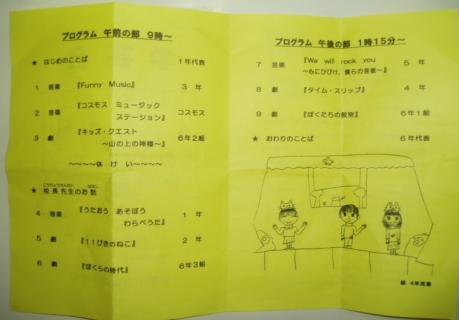 プログラム 午前の部 9時~
★ はじめのことば 1年代表
1 音楽 『Funny Music』 3年
2 音楽 『コスモス ミュージック
ステーション』 コスモス
3 劇 『キッズ・クエスト
~山の上の神様~』 6年2組
~~~~休けい~~~~
★ 校長先生のお話
4 音楽 『うたおう あそぼう
わらべうた』 1年
5 劇 『11ぴきのねこ』 2年
6 劇 『ぼくらの時代』 6年3組
プログラム 午後の部 1時15分~
7 音楽 『We will rock you
~心にひびけ、僕らの音楽~』 5年
8 劇 『タイム・スリップ』 4年
9 劇 『ぼくたちの教室』 6年1組
★ おわりのことば 6年代表
絵 4年児童